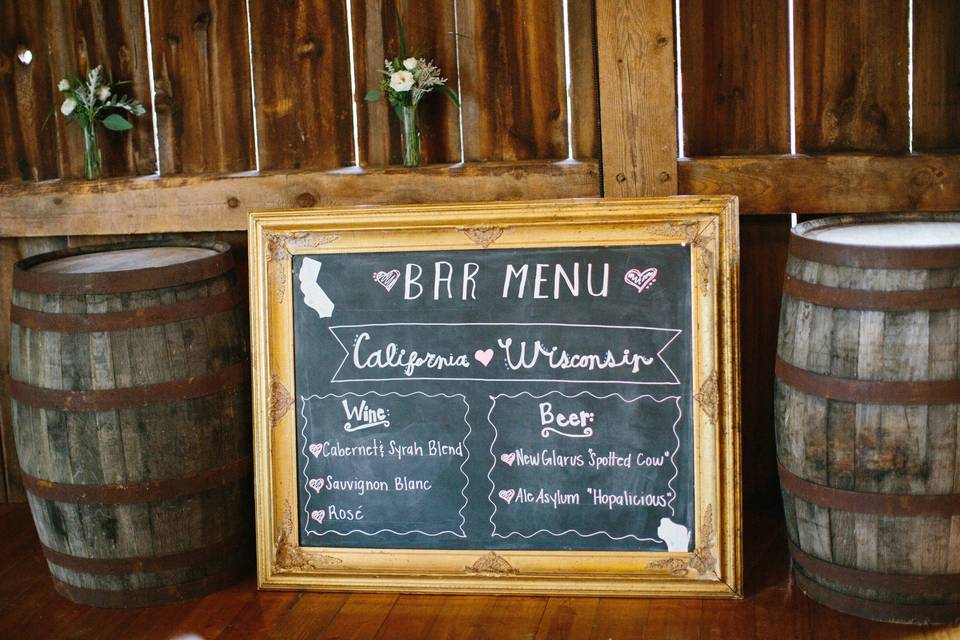 BAR MENU
California Wisconsin
Wine:
Cabernet & Syrah Blend
Sauvignon Blanc
Rosé
Beer:
New Glarus "Spotted Cow"
Ale Asylum "Hopalicious"